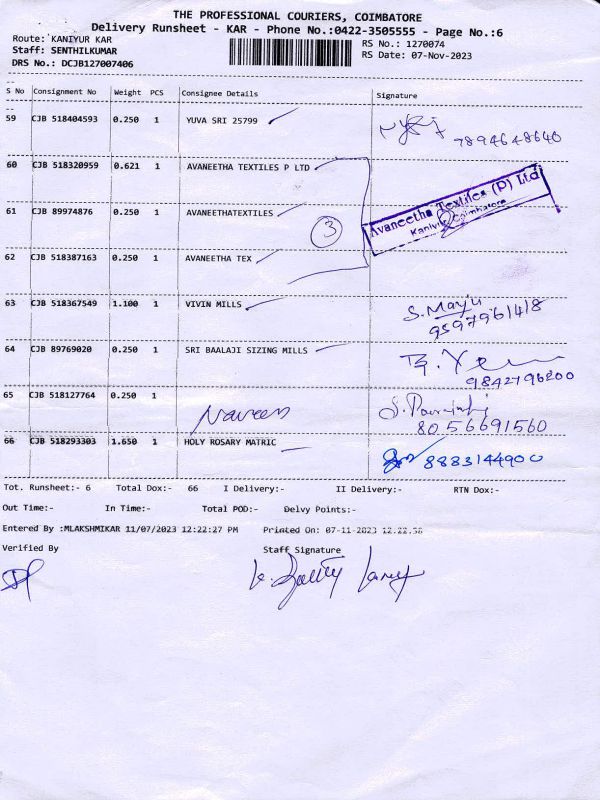 THE PROFESSIONAL COURIERS, COIMBATORE
Delivery Runsheet - KAR - Phone No.:0422-3505555 - Page No.:6
Route: KANIYUR KAR
RS No.: 1270074
Staff: SENTHILKUMAR
RS Date: 07-Nov-2023
DRS No.: DCJB127007406
S No Consignment No Weight PCS Consignee Details Signature
59 CJB 518404593 0.250 1 YUVA SRI 25799
7894648640
60 CJB 518320959 0.621 1 AVANEETHA TEXTILES P LTD
Avaneetha Textiles (P) Ltd
Kaniyur, Coimbatore
61 CJB 89974876 0.250 1 AVANEETHATEXTILES
3
62 CJB 518387163 0.250 1 AVANEETHA TEX
63 CJB 518367549 1.100 1 VIVIN MILLS S. Manju
9597961418
64 CJB 89769020 0.250 1 SRI BAALAJI SIZING MILLS
9842796200
65 CJB 518127764 0.250 1
Naveen 8056691560
66 CJB 518293303 1.650 1 HOLY ROSARY MATRIC 8883144900
Tot. Runsheet:- 6 Total Dox:- 66 I Delivery:- II Delivery:- RTN Dox:-
Out Time:- In Time:- Total POD:- Delvy Points:-
Entered By :MLAKSHMIKAR 11/07/2023 12:22:27 PM Printed On: 07-11-2023 12.22.56
Verified By Staff Signature